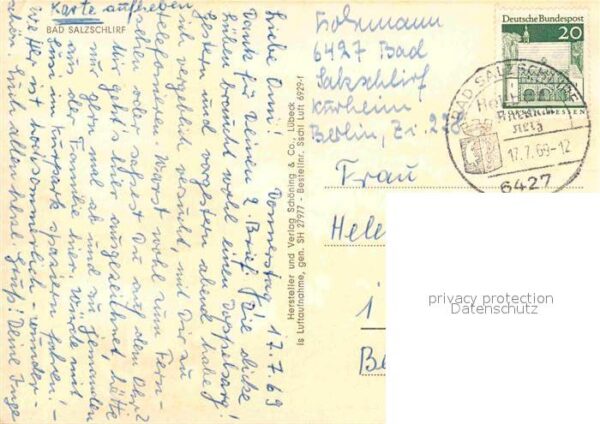 Karte aufheben
BAD SALZSCHLIRF
Donnerstag, 17.7.69
Liebe Omi!
Dank für Deinen 2. Brief! Die dicke
braucht wohl einen Doppelsarg!
Gestern und vorgestern abend habe
ich vergeblich versucht, mit Dir zu
telefonieren. Warst wohl zum Fern-
sehen oder sahst Du auf dem Ohr?
Mir geht's hier ausgezeichnet, hätte
nur gern mal ab und zu jemanden
aus der Familie hier, würde mit
im Kurpark spazieren fahren! -
Wetter ist hochsommerlich - wunder-
schön. Euch allen herzl. Grüße! Deine Inge
Hersteller und Verlag Schöning & Co., Lübeck
Luftaufnahme, gen. SH 27977 - Bestellnr. Sschl Luft 6929-1
6427 Bad
Salzschlirf
Kurheim
Berlin, Zi. 228
Deutsche Bundespost
20
BAD SALZSCHLIRF
17.7.69-12
6427
Frau
Hele
1
Be
privacy protection
Datenschutz